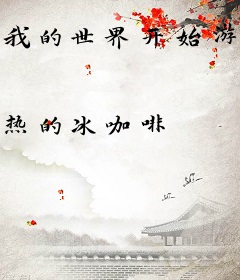 我的世界开始游
热的冰咖啡